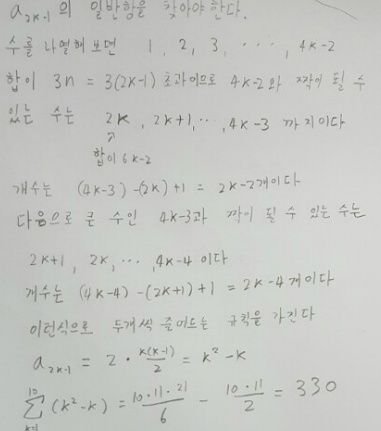 a_{2k-1} 의 일반항을 찾아야 한다.
수를 나열해 보면 1, 2, 3, ⋯, 4k-2
합이 3n = 3(2k-1) 초과이므로 4k-2와 짝이 될 수
있는 수는 2k, 2k+1, ⋯, 4k-3 까지이다
↑
합이 6k-2
개수는 (4k-3)-(2k)+1 = 2k-2개이다
다음으로 큰 수인 4k-3과 짝이 될 수 있는 수는
2k+1, 2k, ⋯, 4k-4 이다
개수는 (4k-4)-(2k+1)+1 = 2k-4 개이다
이런식으로 두개씩 줄어드는 규칙을 가진다
a_{2k-1} = 2 · \frac{k(k-1)}{2} = k² - k
\sum_{k=1}^{10} (k²-k) = \frac{10·11·21}{6} - \frac{10·11}{2} = 330